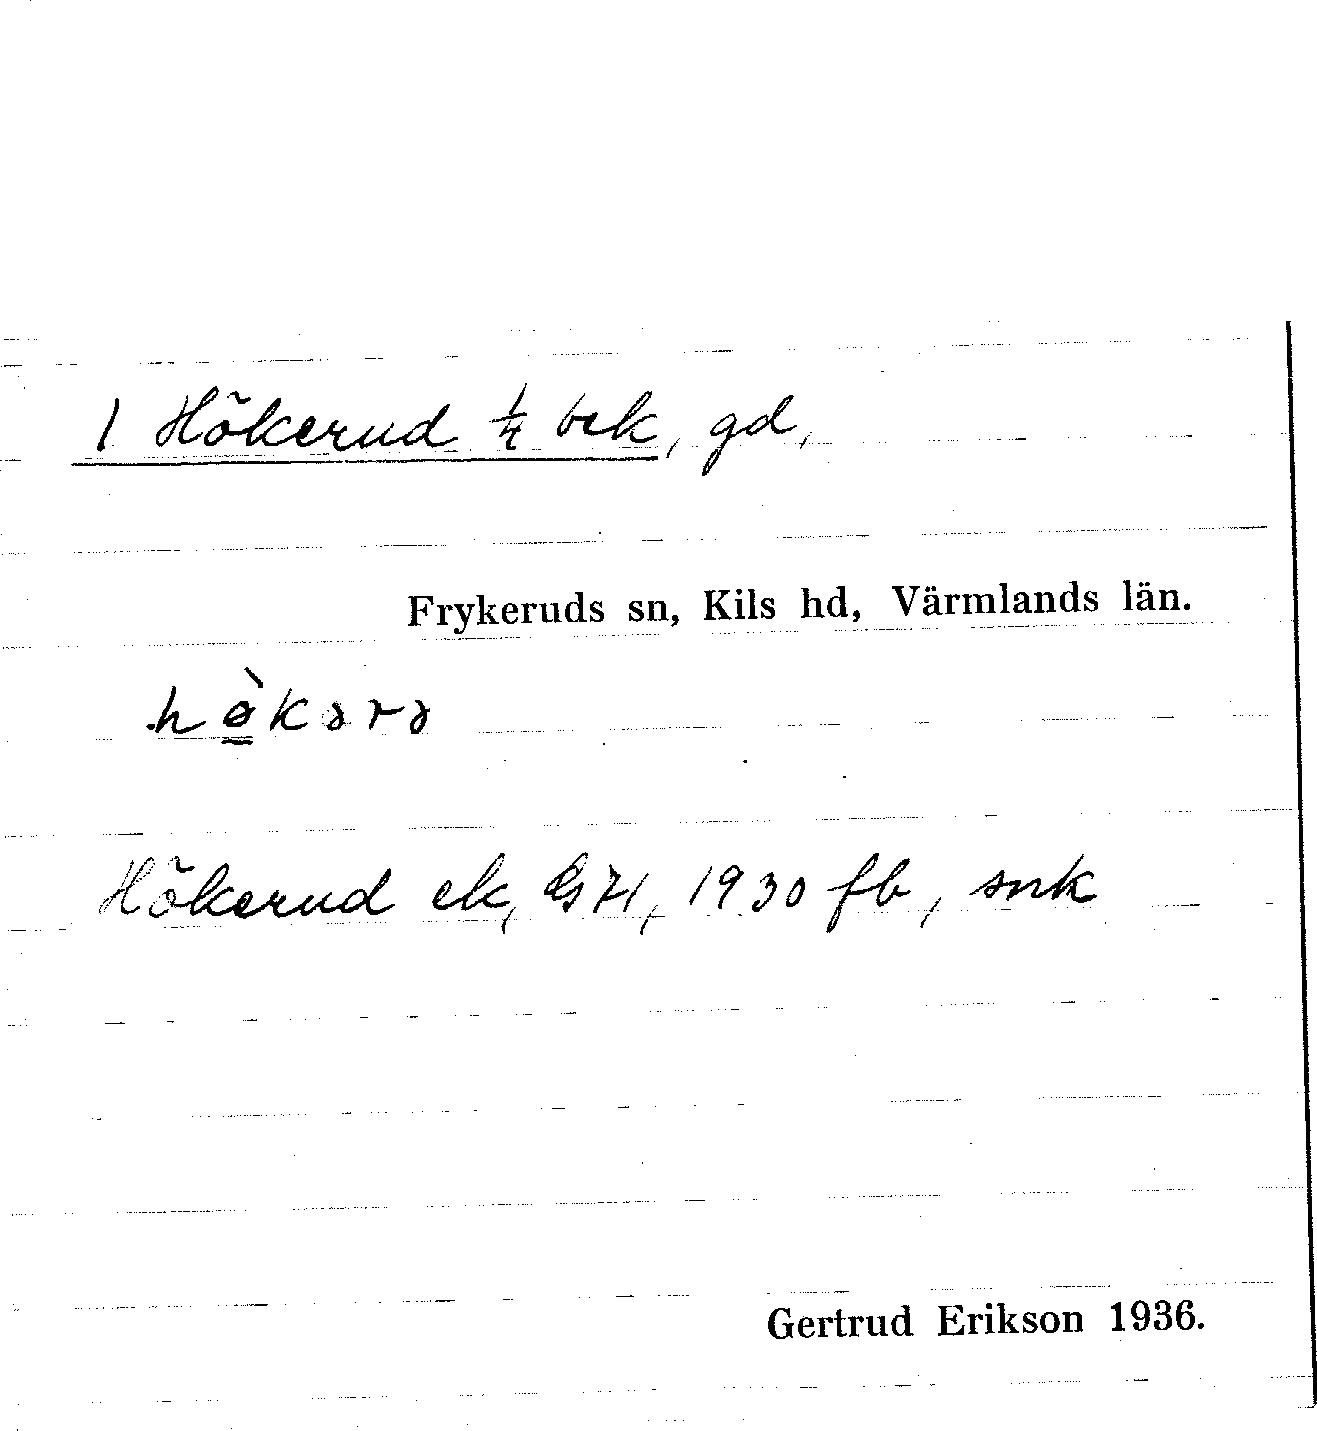 1 Hökerud ¼ bek, gd,
Frykeruds sn, Kils hd, Värmlands län.
hø̀kərə
Hökerud ek, 1930 fb, snk
Gertrud Erikson 1936.